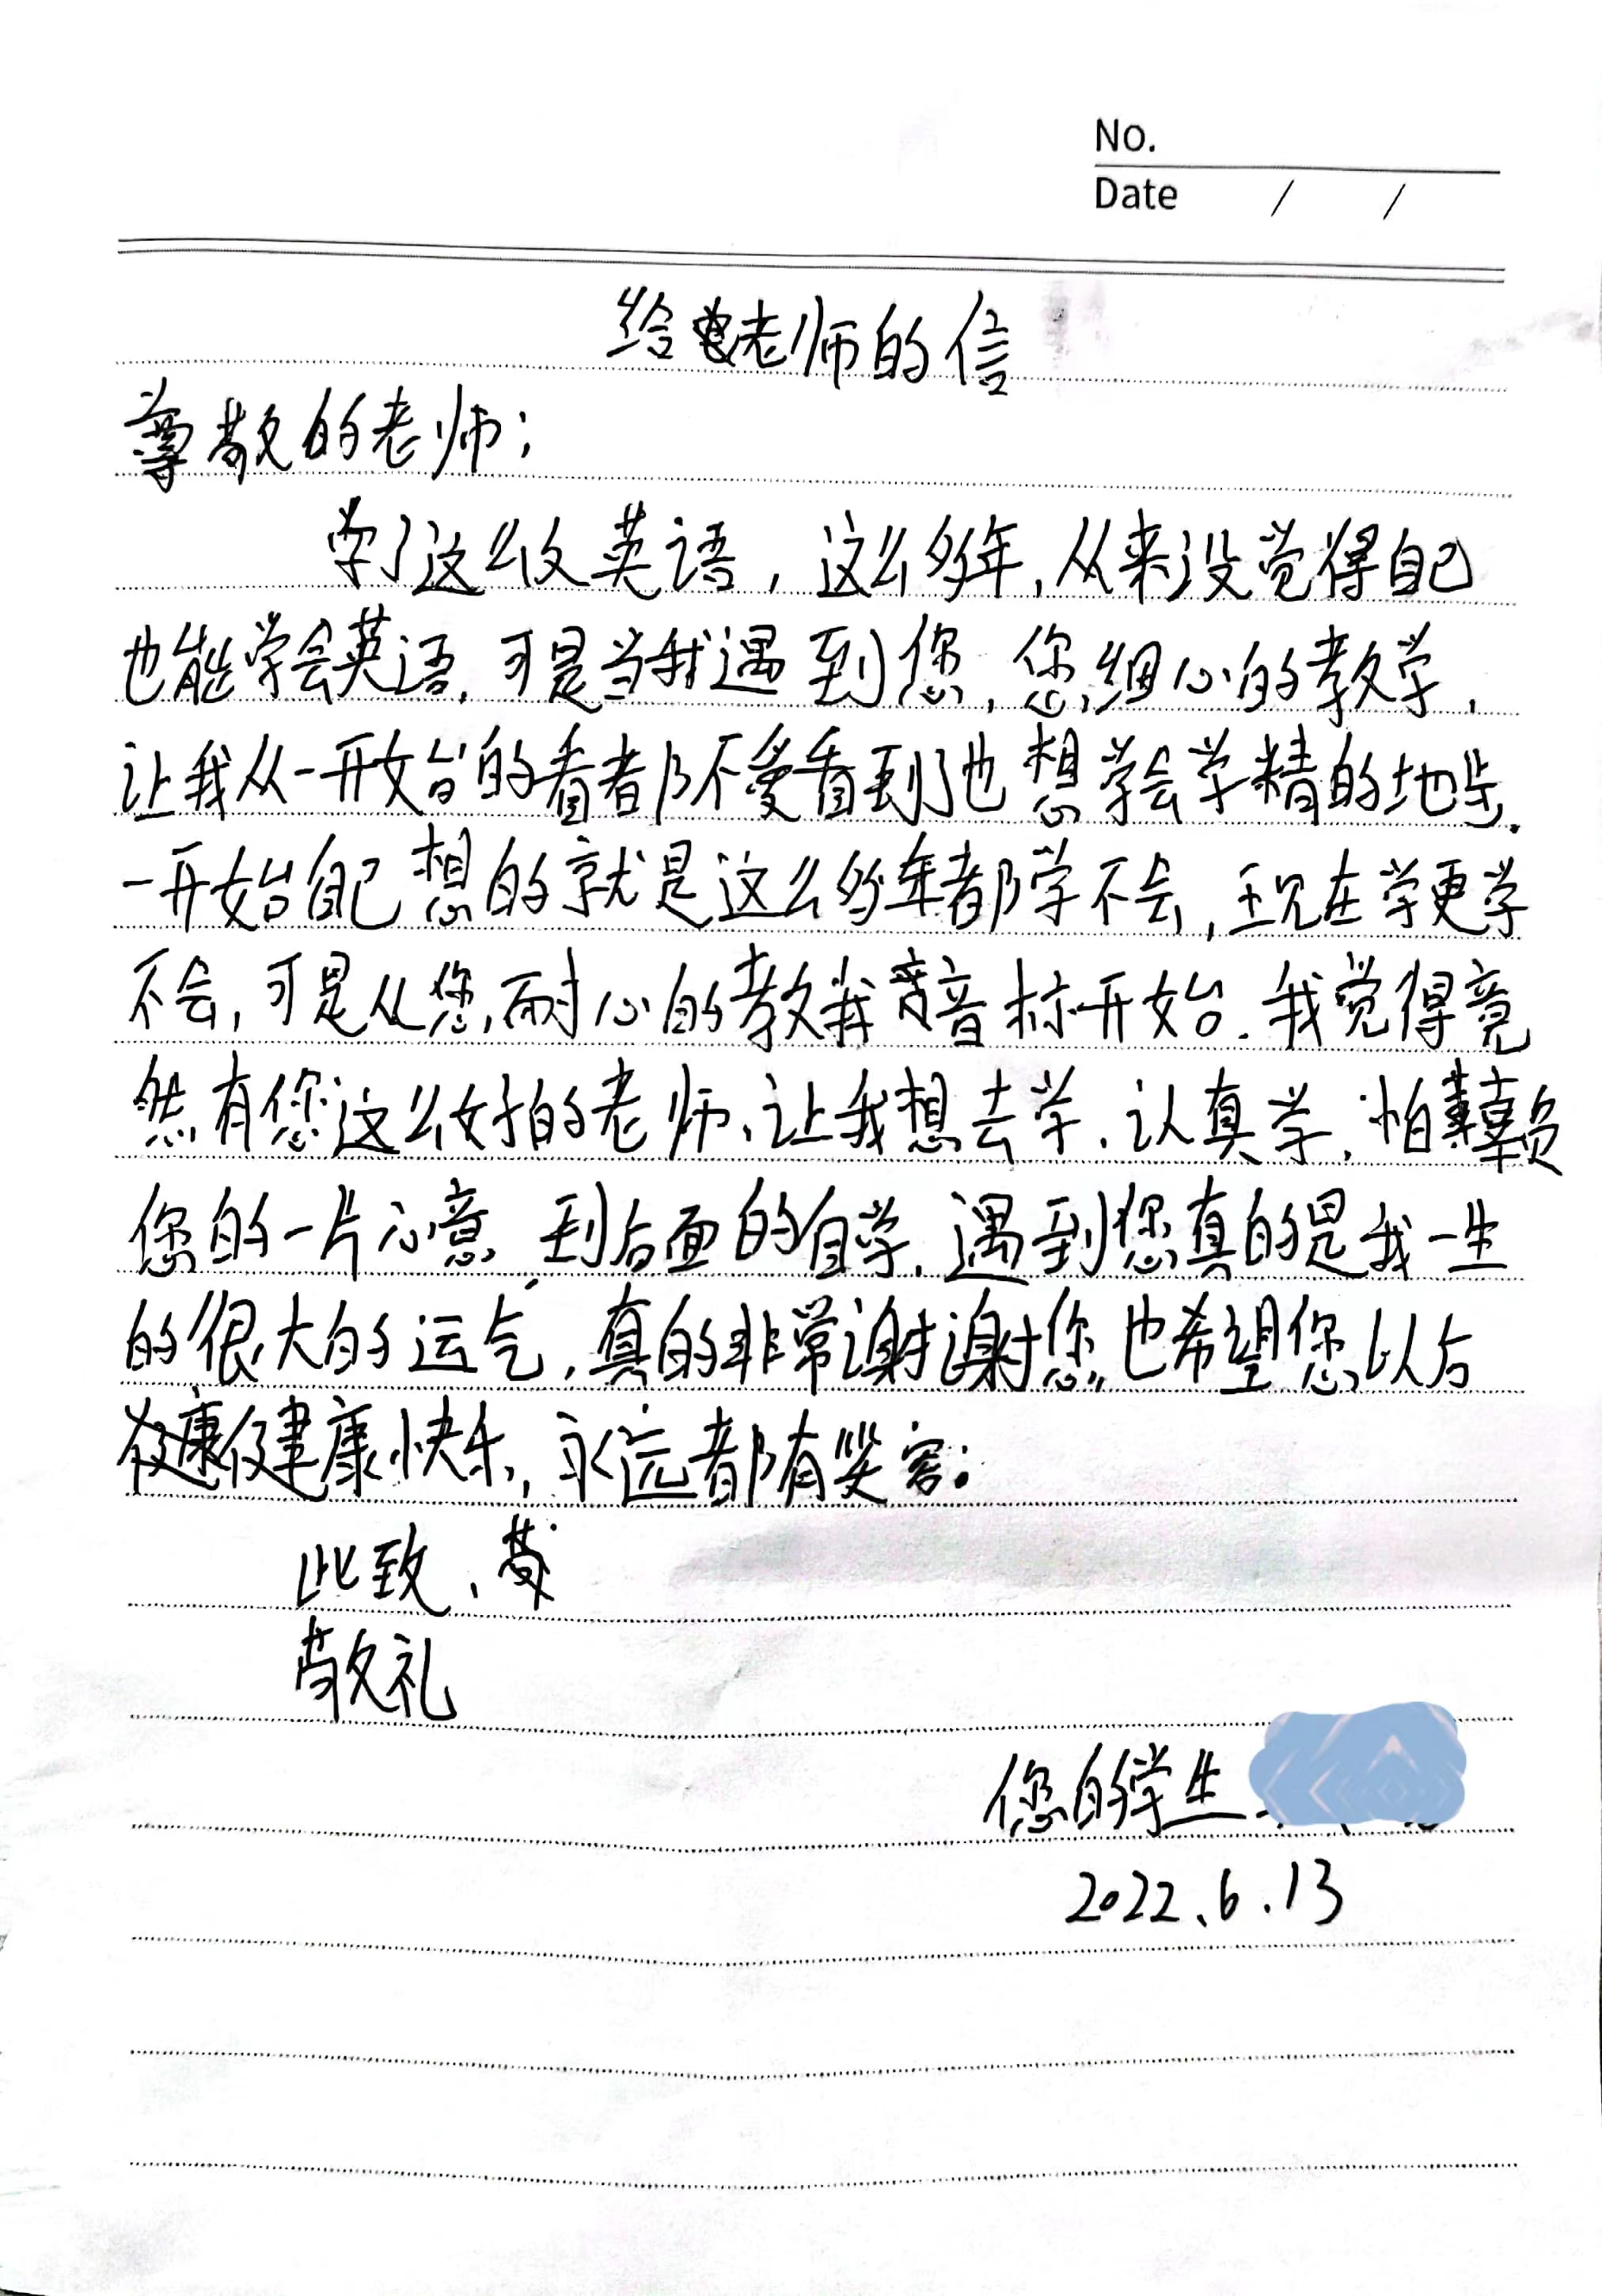 No.
Date / /
给老师的信
尊敬的老师:
学了这么久英语,这么多年,从来没觉得自己
也能学会英语,可是当我遇到您,您细心的教学,
让我从一开始的看都不爱看到了也想学会学精的地步.
一开始自己想的就是这么多年都学不会,现在学更学
不会,可是从您耐心的教我音标开始.我觉得竟
然有您这么好的老师、让我想去学.认真学,怕辜负
您的一片心意,到后面的自学.遇到您真的是我一生
的很大的运气,真的非常谢谢您,也希望您以后
健康快乐,永远都有笑容.
此致、
敬礼
您的学生
2022.6.13